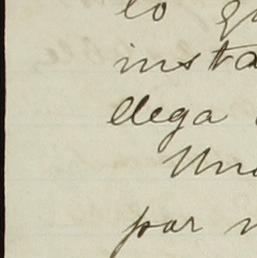 lo
insta
llega
Un
par